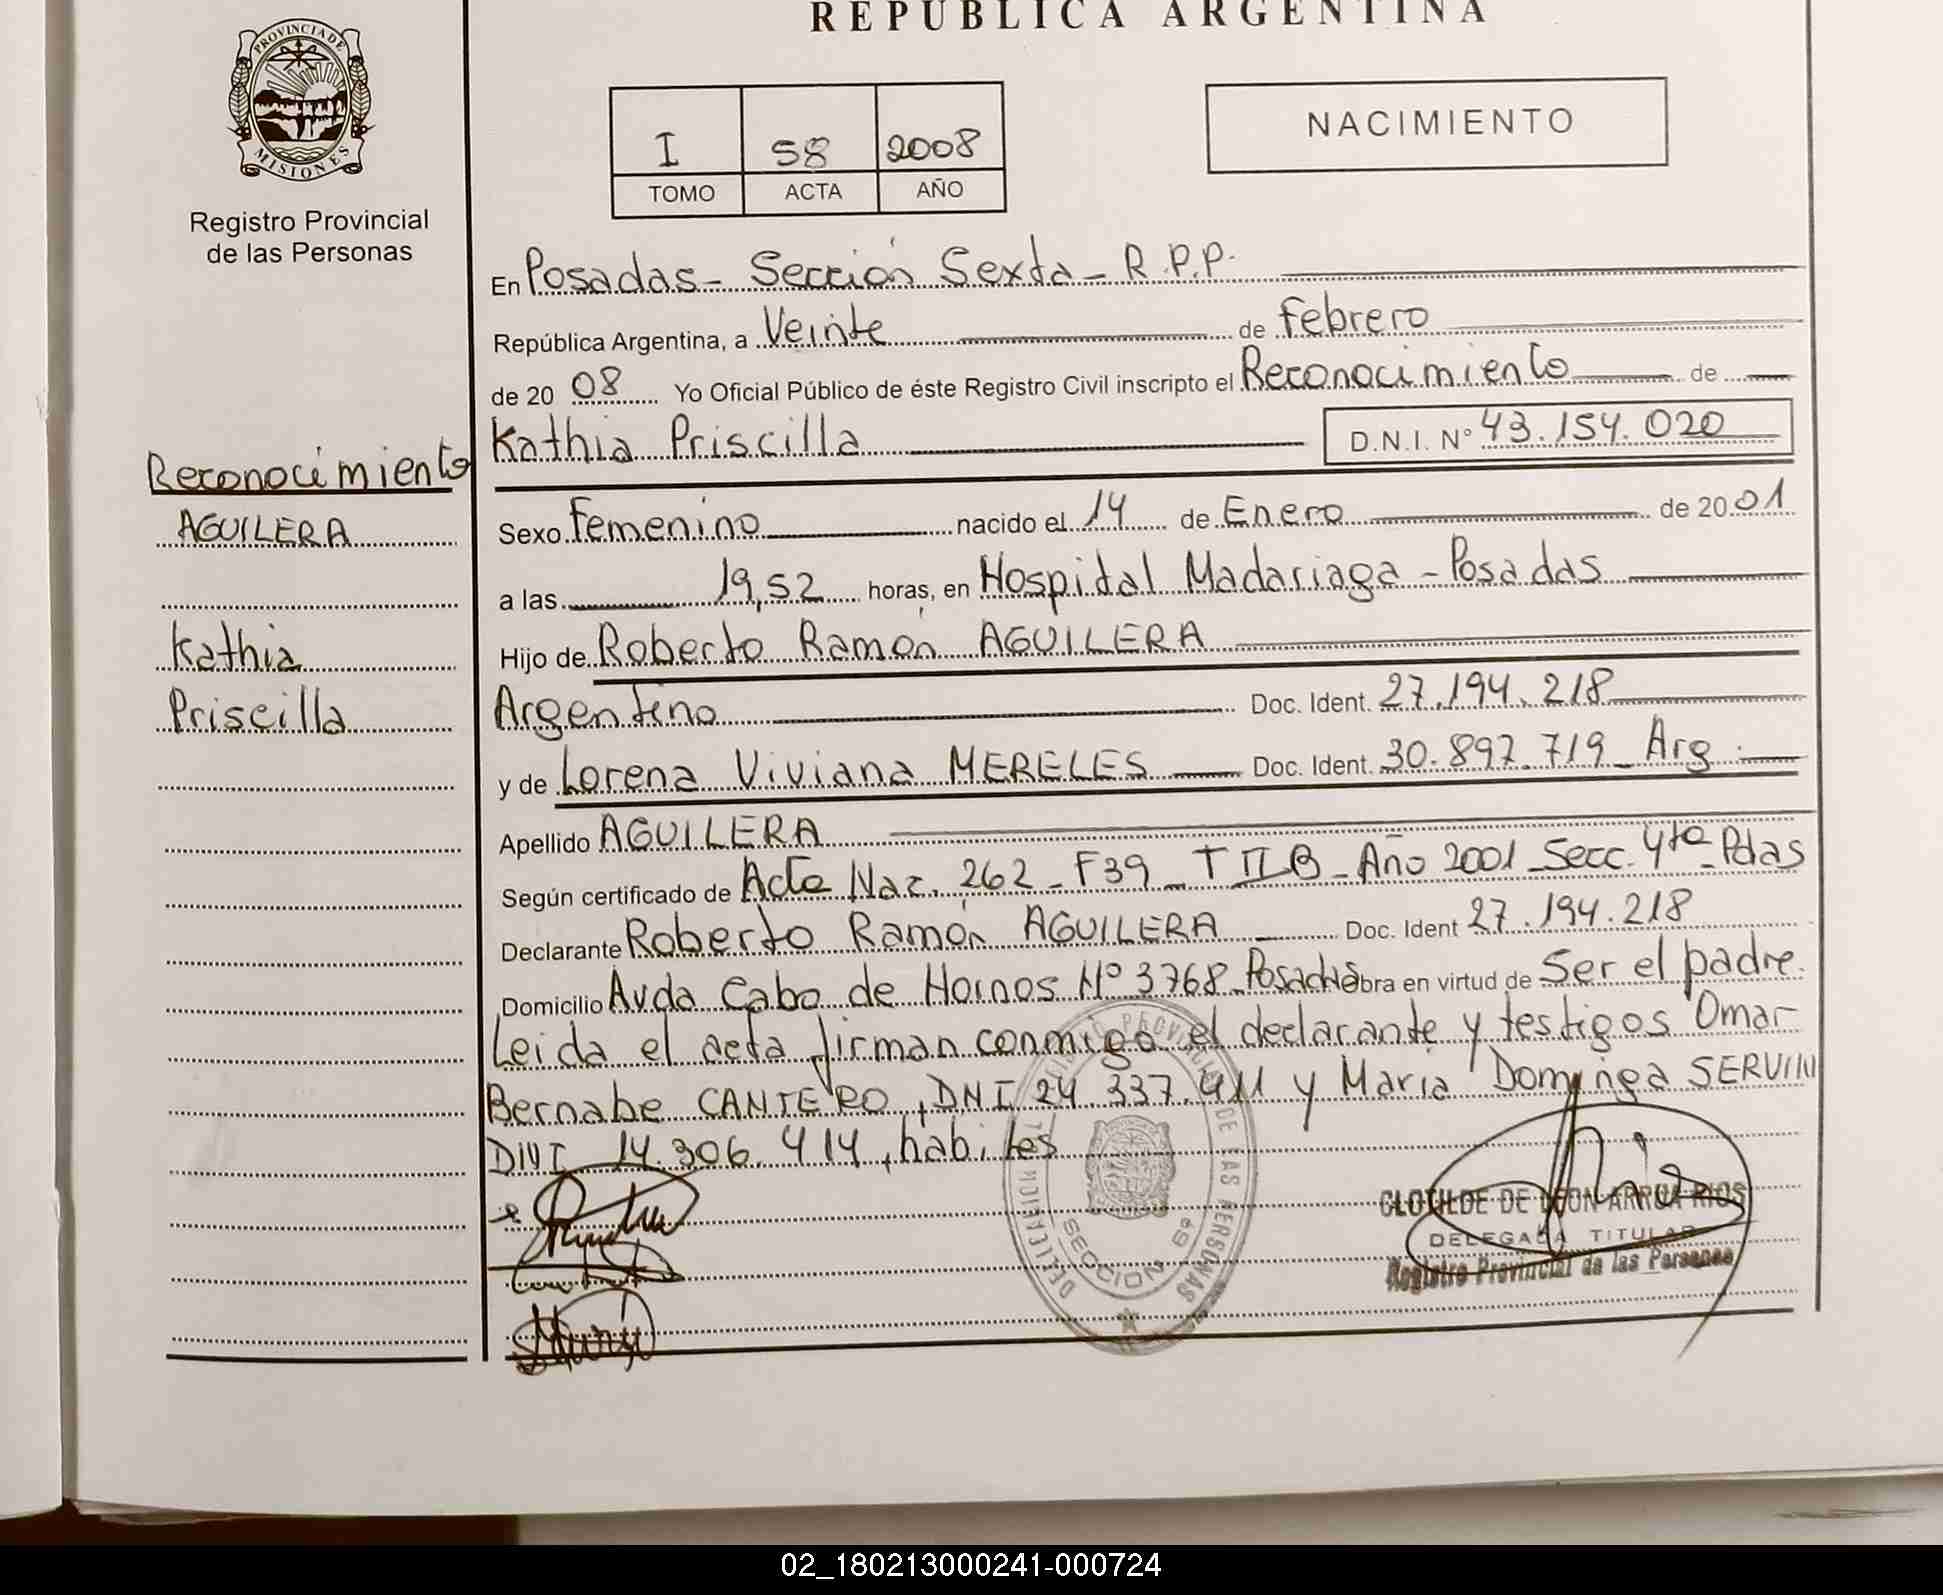 REPUBLICA ARGENTINA
PROVINCIA DE
MISIONES
Registro Provincial
de las Personas
I 58 2008
TOMO ACTA AÑO
NACIMIENTO
En Posadas - Sección Sexta - R.P.P.
República Argentina, a Veinte de Febrero
de 20 08 Yo Oficial Público de éste Registro Civil inscripto el Reconocimiento de
Kathia Priscilla D.N.I. Nº 43.154.020
Reconocimiento
AGUILERA
Kathia
Priscilla
Sexo Femenino nacido el 14 de Enero de 2001
a las 19,52 horas, en Hospital Madariaga - Posadas
Hijo de Roberto Ramón AGUILERA
Argentino Doc. Ident. 27.194.218
y de Lorena Viviana MERELES Doc. Ident. 30.897.719 - Arg.
Apellido AGUILERA
Según certificado de Acta Nac. 262 - F39 - T II B - Año 2001 - Secc. 4ta - Pdas
Declarante Roberto Ramón AGUILERA Doc. Ident 27.194.218
Domicilio Avda Cabo de Hornos Nº 3768 - Posadas Obra en virtud de Ser el padre.
Leida el acta firman conmigo el declarante y testigos Omar
Bernabe CANTERO, DNI 24.337.411 y Maria Dominga SERVIN
DNI 14.306.414, habiles
CLOTILDE DE LEON ARRUA RIOS
DELEGADA TITULAR
Registro Provincial de las Personas
SECCION 6ª
02_180213000241-000724